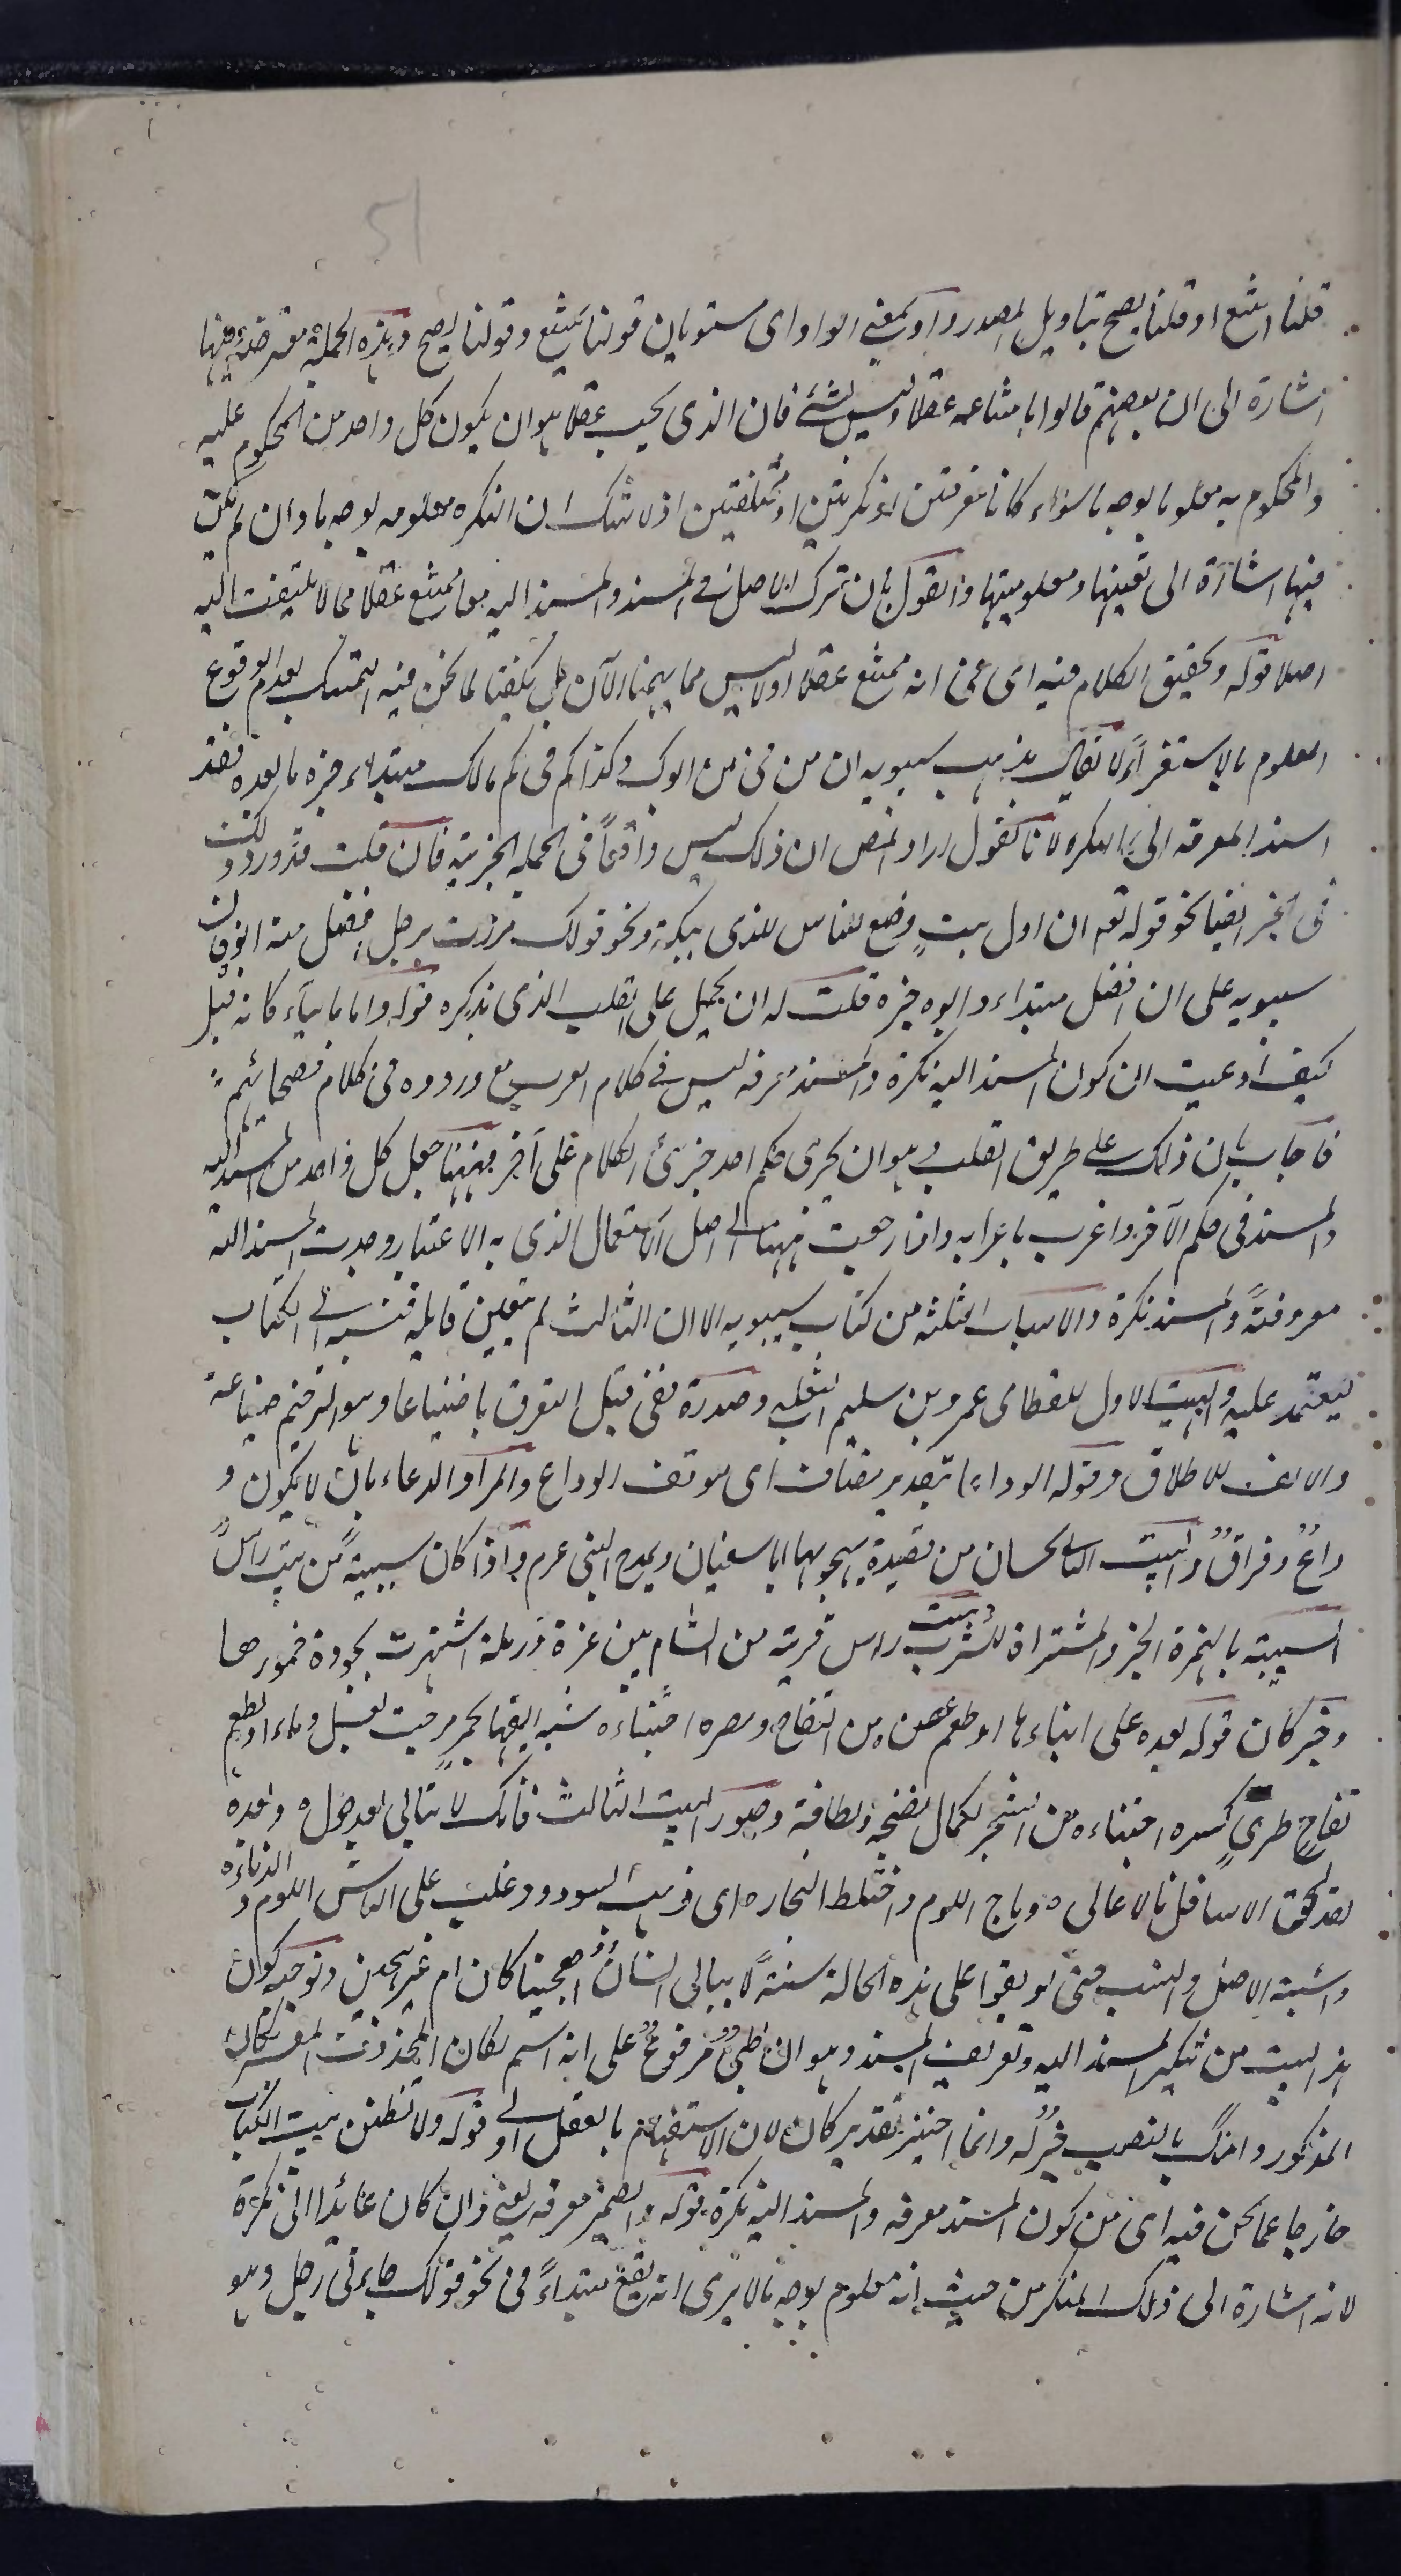 51
قلنا امتنع او قلنا يصح بتاويل المصدر واو بمعنى الواو اى مستويان قولنا يمتنع وقولنا يصح وهذه الجملة معترضة منها
اشارة الى ان بعضهم قالوا بامتناعه عقلا وليس بشئ فان الذى يجب عقلا هو ان يكون كل واحد من المحكوم عليه
والمحكوم به معلوما بوجه ما سواء كانا معرفتين او نكرتين او مختلفتين اذ لا شك ان النكرة معلومة بوجه ما وان لم تكن
فيها اشارة الى تعينها ومعلوميتها والقول بان ترك الاصل فى المسند والمسند اليه معا ممتنع عقلا مما لا يلتفت اليه
اصلا قوله وتحقيق الكلام فيه اى فى انه ممتنع عقلا اولا ليس مما يهمنا الآن بل يكفينا لما نحن فيه التمسك بعدم الوقوع
المعلوم بالاستقراء لا يقال مذهب سيبويه ان من فى من ابوك وكذا كم فى كم مالك مبتداء خبره ما بعده فقد
اسند المعرفة الى النكرة لانا نقول اراد المص ان ذلك ليس واقعا فى الجملة الخبرية فان قلت قد ورد ذلك
فى الخبر ايضا نحو قوله تع ان اول بيت وضع للناس للذى ببكة ونحو قولك مررت برجل افضل منه ابوه فان
سيبويه على ان افضل مبتداء وابوه خبره قلت له ان يحمل على القلب الذى نذكره قوله واما ما جاء كانه قيل
كيف ادعيت ان كون المسند اليه نكرة والمسند معرفة ليس فى كلام العرب مع وروده فى كلام فصحائهم
فاجاب بان ذلك على طريق القلب وهو ان يجرى حكم احد جزئى الكلام على آخر فههنا جعل كل واحد من المسند اليه
والمسند فى حكم الآخر واعرب باعرابه واذا رجعت ههنا الى اصل الاستعمال الذى به الاعتبار وجدت المسند اليه
معرفة والمسند نكرة والابيات الثلثة من كتاب سيبويه الا ان الثالث لم يتعين قايله فنسبه الى الكتاب
ليعتمد عليه والبيت الاول للقطامى عمرو بن سليم التغلبى وصدره قفى قبل التفرق يا ضباعا وهو الترخيم ضباعة
والالف للاطلاق وقوله الوداعا بتقدير مضاف اى موقف الوداع والمراد الدعاء بان لا يكون و
داع وفراق والبيت الثانى لحسان من قصيدة يهجو بها ابا سفيان ويمدح النبى عم واذا كان سبيئة من بيت راس
السبيئة بالهمزة الخمر والمشتراة للشرب وبيت راس قرية من الشام بين غزة ورملة اشتهرت بجودة خمورها
وخبر كان قوله بعده على انيابها او طعم غصن من التفاح هصره اجتناءه شبه ريقها بخمر مزجت بعسل وماء او بطعم
تفاح طرى كسره اجتناءه من الشجر لكمال نضجه ولطافته وصدر البيت الثالث فانك لا تبالى بعد حول وبعده
لقد لحق الاسافل بالاعالى وماج اللوم واختلط النجار اى ذهب السودد وغلب على الناس اللوم والدناءة
واشتبه الاصل والنسب حتى لو بقوا على هذه الحالة سنة لا يبالى انسان أهجينا كان ام غير هجين وتوجيه كون
هذا البيت من تنكير المسند اليه وتعريف المسند وهو ان ظبى مرفوع على انه اسم لكان المحذوف المفسر بكان
المذكور وامك بالنصب خبر له وانما اختير تقدير كان لان الاستفهام بالفعل اولى قوله ولا تظنن بيت الكتاب
خارجا عما نحن فيه اى من كون المسند معرفة والمسند اليه نكرة قوله والضمير معرفة يعنى وان كان عائدا الى نكرة
لانه اشارة الى ذلك المنكر من حيث انه معلوم بوجه ما الا يرى انه يقع مبتداء فى نحو قولك جاءنى رجل وهو